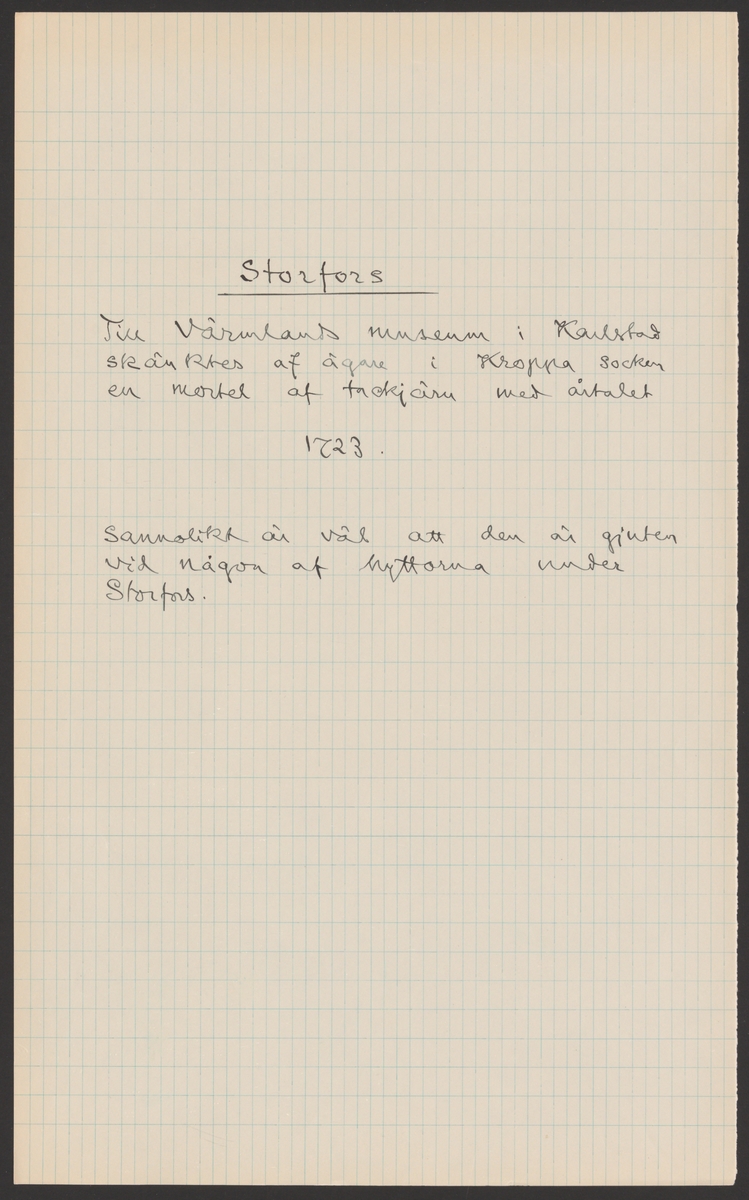 Storfors
Till Värmlands museum i Karlstad
skänktes af ägare i Kroppa socken
en mortel af tackjärn med årtalet
1723.
Sannolikt är väl att den är gjuten
vid någon af hyttorna under
Storfors.